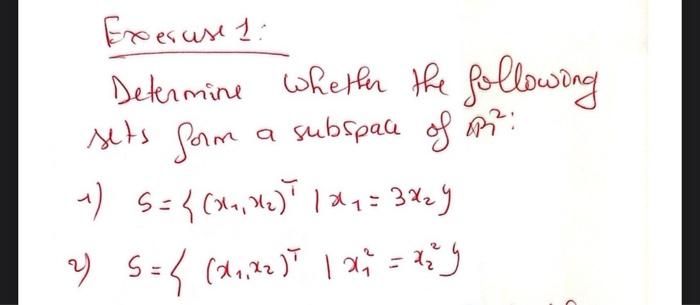 Exercise 1:
Determine whether the following
sets form a subspace of ℝ²:
1) S = { (x₁, x₂)ᵀ | x₁ = 3x₂ }
2) S = { (x₁, x₂)ᵀ | x₁² = x₂² }